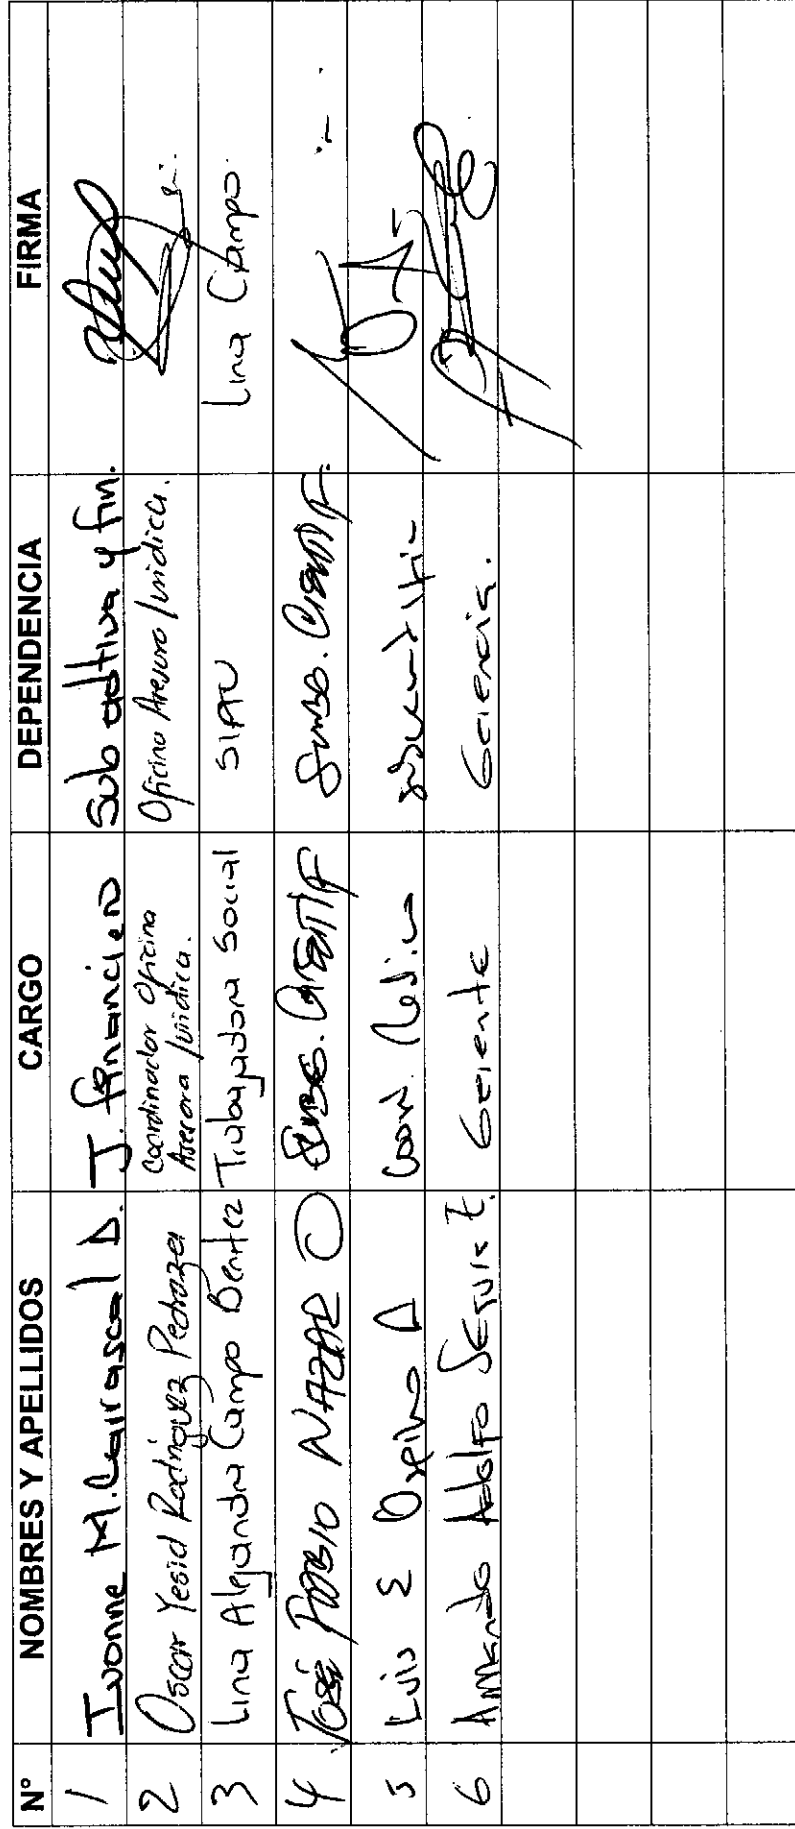 N° NOMBRES Y APELLIDOS CARGO DEPENDENCIA FIRMA
1 Ivonne M. Cairascal D. J. financiero Sub adtiva y fin.
2 Oscar Yesid Rodríguez Pedraza Coordinador Oficina
Asesora Jurídica. Oficina Asesora Jurídica.
3 Lina Alejandra Campo Benitez Trabajadora Social SIAU Lina Campo.
4 José NAZAR
5 Luis E Ospino
6 Armando Adolfo Gerente Gerencia.